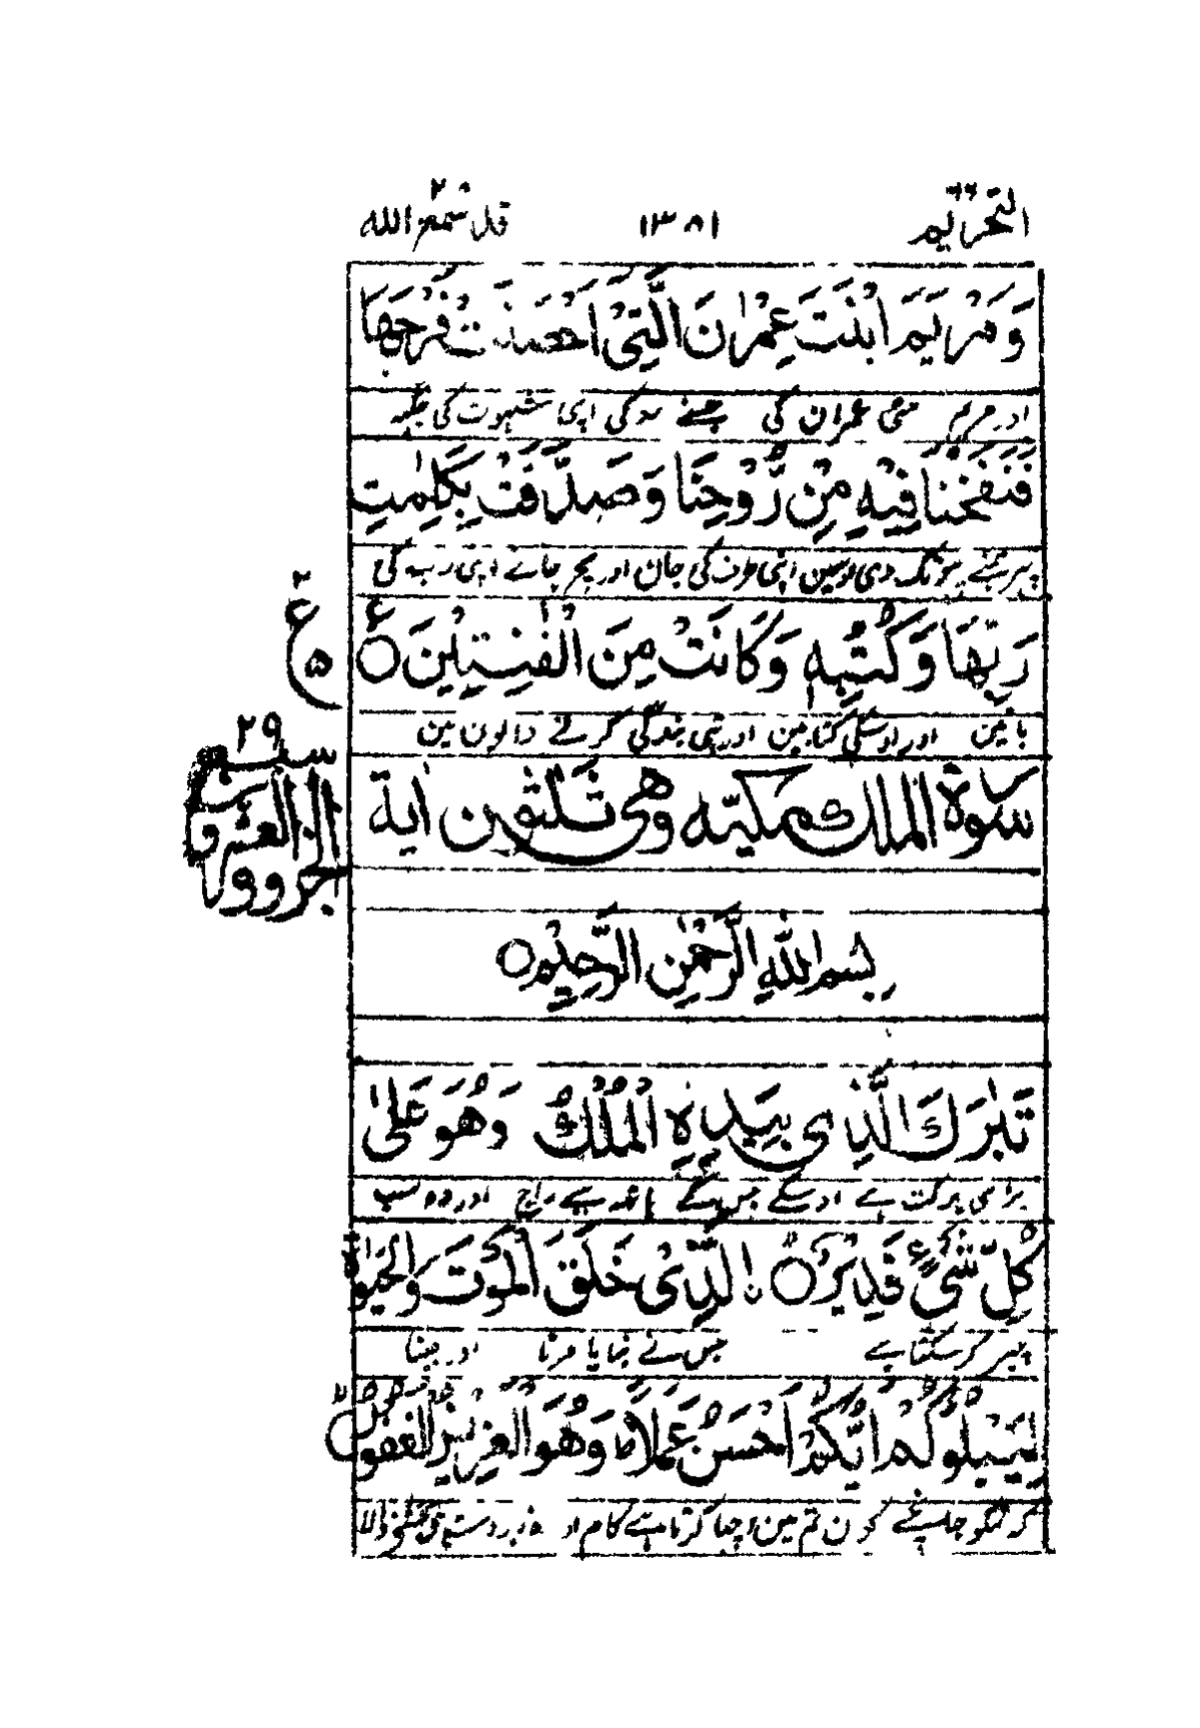 التحريم ٦٦
١٣٨١
قد سمع الله ٢٨
وَمَرْيَمَ ابْنَتَ عِمْرٰنَ الَّتِيْ اَحْصَنَتْ فَرْجَهَا
اور مریم بیٹی عمران کی جسنے روکی اپنی شہوت کی جگہہ
فَنَفَخْنَا فِيْهِ مِنْ رُّوْحِنَا وَصَدَّقَتْ بِكَلِمٰتِ
پھر ہمنے پھونک دی اوسمین اپنی طرف کی جان اور سچ جانے اپنی رب کی
رَبِّهَا وَكُتُبِهٖ وَكَانَتْ مِنَ الْقٰنِتِيْنَ ○
٢ ع ٥
باتین اور اوسکی کتابین اور تہی بندگی کرنے والون مین
سورة الملك مكيّه وهي ثلثون اية
٢٩
الجزء التاسع والعشرون
بِسْمِ اللّٰهِ الرَّحْمٰنِ الرَّحِيْمِ ○
تَبٰرَكَ الَّذِيْ بِيَدِهِ الْمُلْكُ وَهُوَ عَلٰى
بڑی برکت ہے اوسکے جسکے ہاتھہ ہے راج اور وہ سب
كُلِّ شَيْءٍ قَدِيْرٌ ○ الَّذِيْ خَلَقَ الْمَوْتَ وَالْحَيٰوةَ
چیز کر سکتا ہے جس نے بنایا مرنا اور جینا
لِيَبْلُوَكُمْ اَيُّكُمْ اَحْسَنُ عَمَلًا ط وَهُوَ الْعَزِيْزُ الْغَفُوْرُ
کہ تمکو جانچے کون تم مین اچھا کرتا ہے کام اور وہ زبردست ہے بخشنے والا